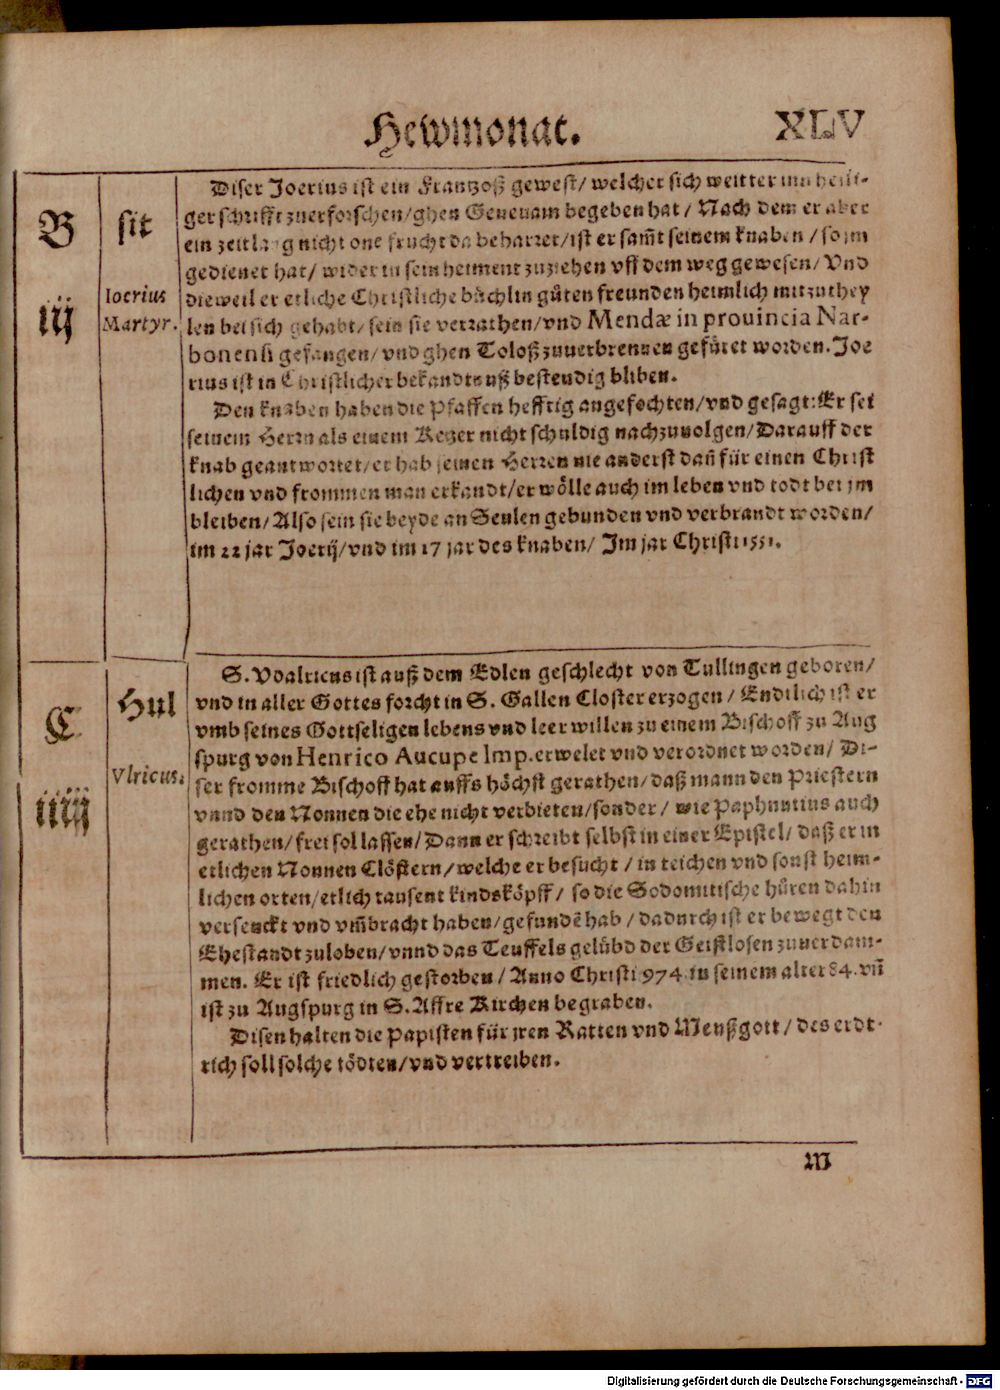 Hewmonat. XLV
B
sit
iij
Ioerius
Martyr.
Diser Joerius ist ein Frantzoß gewest/ welcher sich weitter inn heili-
ger schrifft zuerforschen/ghen Geneuam begeben hat / Nach dem er aber
ein zeitlang nicht one frucht da beharret/ist er sam̃t seinem knaben / so jm
gedienet hat/ wider in sein heiment zuziehen vff dem weg gewesen/ Vnd
dieweil er etliche Christliche bůchlin gůten freunden heimlich mitzuthey
len bei sich gehabt/ sein sie verrathen/vnd Mendæ in prouincia Nar-
bonensi gefangen/ vnd ghen Toloß zuuerbrennen gefůret worden. Joe
rius ist in Christlicher bekandtnuß bestendig bliben.
Den knaben haben die Pfaffen hefftig angefochten/vnd gesagt: Er sei
seinem Herrn als einem Ketzer nicht schuldig nachzuuolgen/ Darauff der
knab geantwortet/er hab seinen Herren nie anderst dañ für einen Christ
lichen vnd frommen man erkandt/er wölle auch im leben vnd todt bei jm
bleiben/ Also sein sie beyde an Seulen gebunden vnd verbrandt worden/
im 22 jar Joerij/vnd im 17 jar des knaben/ Im jar Christi 1551.
C
Hul
iiij
Vlricus.
S. Vdalricus ist auß dem Edlen geschlecht von Tullingen geboren/
vnd in aller Gottes forcht in S. Gallen Closter erzogen / Endtlich ist er
vmb seines Gottseligen lebens vnd leer willen zu einem Bischoff zu Aug
spurg von Henrico Aucupe Imp. erwelet vnd verordnet worden/ Di-
ser fromme Bischoff hat auffs höchst gerathen/daß mann den Priestern
vnnd den Nonnen die ehe nicht verbieten/sonder / wie Paphnutius auch
gerathen/ frei sol lassen/ Dann er schreibt selbst in einer Epistel/ daß er in
etlichen Nonnen Clöstern/ welche er besucht / in teichen vnd sonst heim-
lichen orten/etlich tausent kindsköpff/ so die Sodomitische hůren dahin
versenckt vnd vm̃bracht haben/gefundẽ hab / dadurch ist er bewegt den
Ehestandt zuloben/vnnd das Teuffels gelübd der Geistlosen zuuerdam-
men. Er ist friedlich gestorben / Anno Christi 974 in seinem alter 84. vñ
ist zu Augspurg in S. Affre Kirchen begraben.
Disen halten die Papisten für jren Ratten vnd Meußgott / des erdt-
rich soll solche tödten/vnd vertreiben.
M
Digitalisierung gefördert durch die Deutsche Forschungsgemeinschaft - DFG